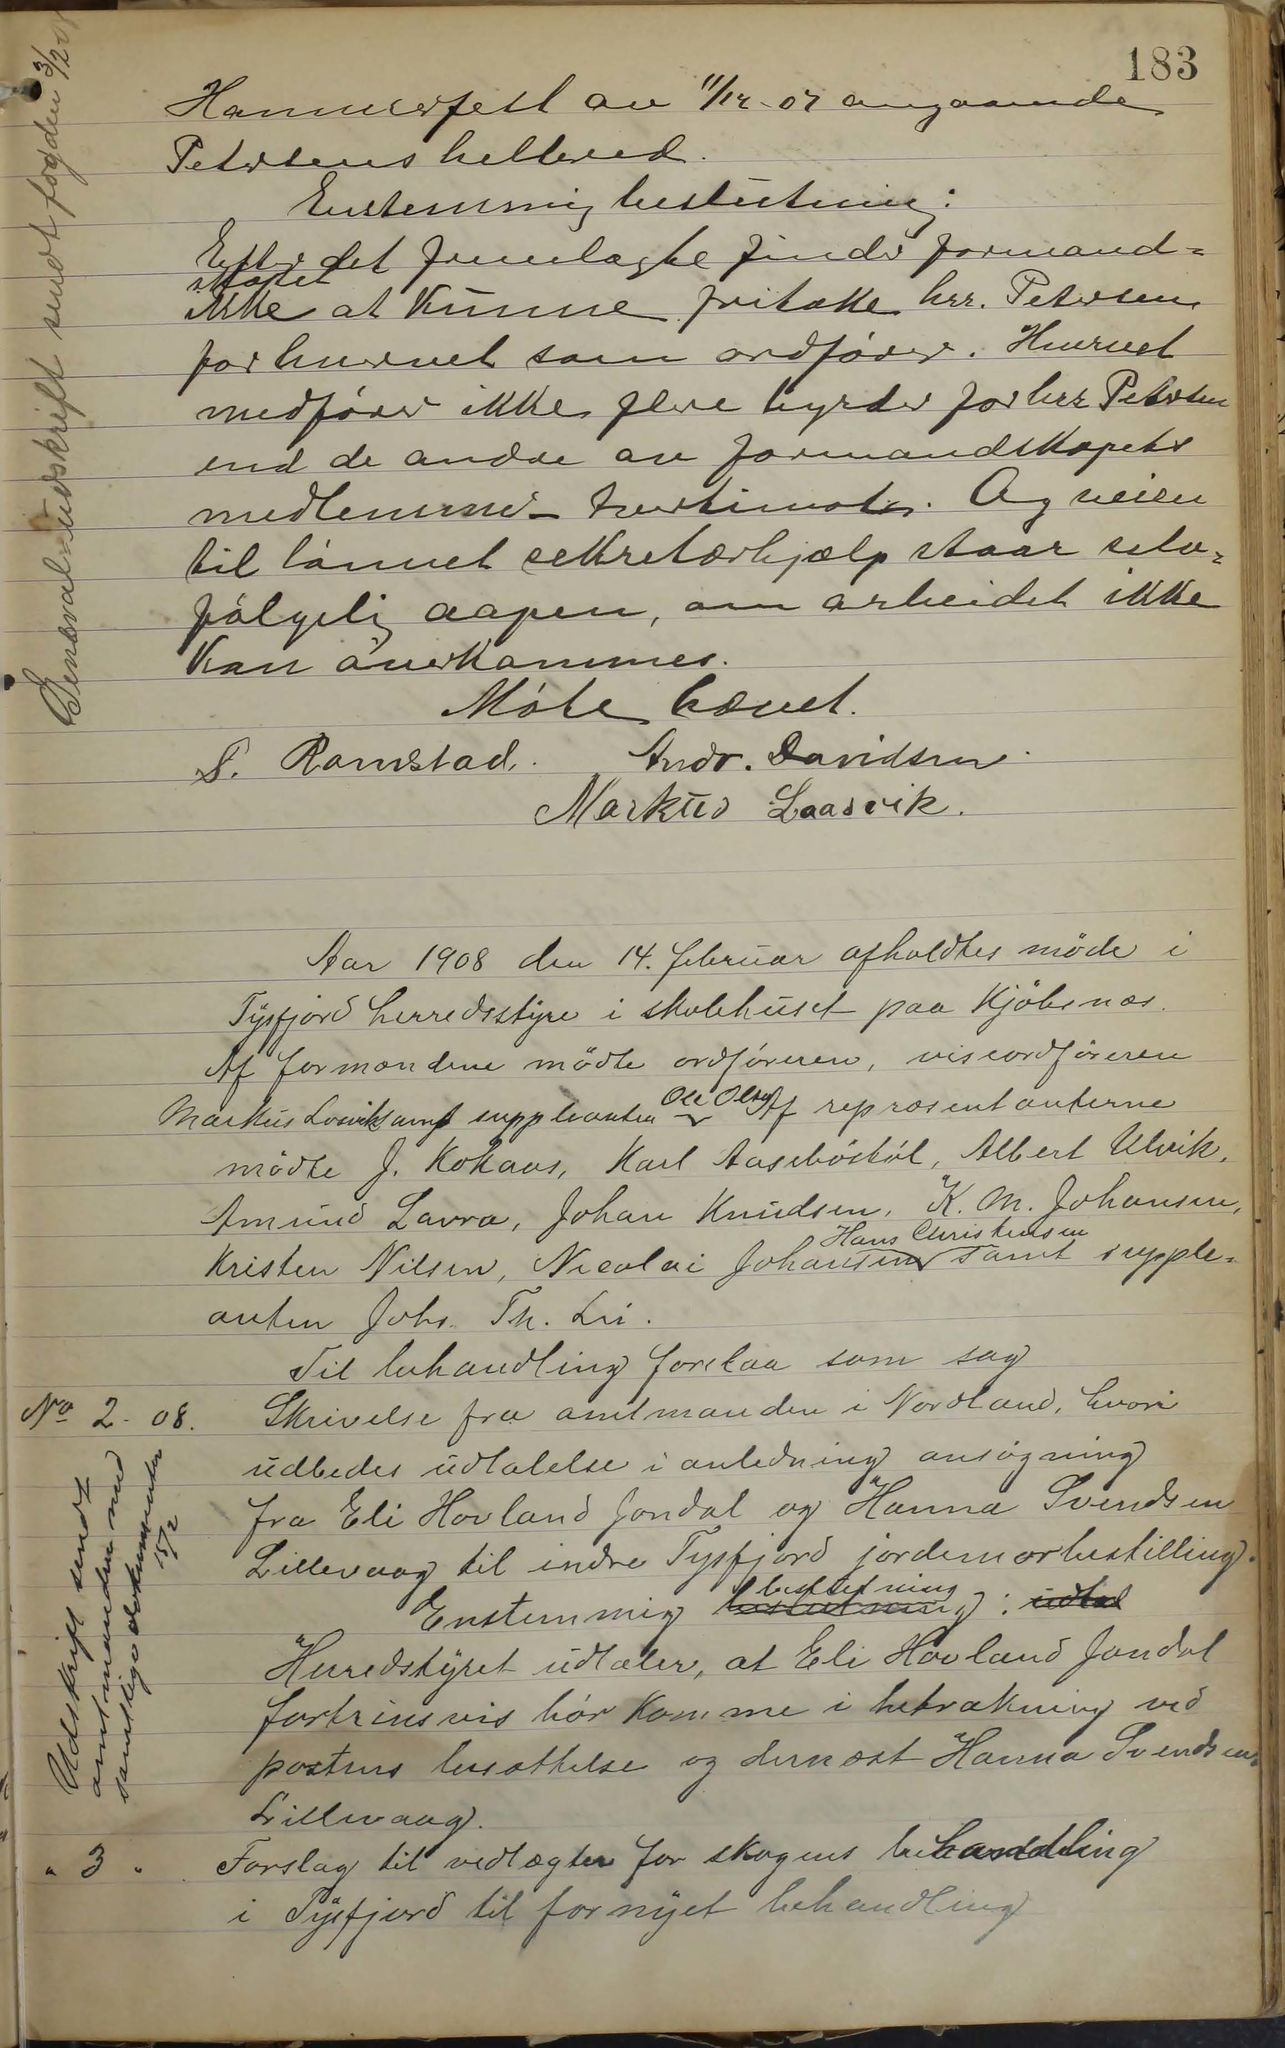 183
Hammerfest av 11/12-07 angaaende
Petersens helbred.
Enstemmig beslutning:
Efter det fremlagte finder formand=
skapet
ikke at kunne fritake hrr. Petersen
for hvervet som ordfører. Hvervet
medfører ikke flere byrder for hrr Petersen
end de andre av formandskapets
medlemmer - tvertimot. Og veien
til lønnet sekretærhjælp staar selv=
følgelig aapen, om arbeidet ikke
kan overkommes.
Møte hævet.
S. Ramstad. Andr. Davidsen
Markus Laasvik.
Genpartutskrift sendt fogden 3/2 08
Aar 1908 den 14. februar afholdtes møde i
Tysfjord herredsstyre i skolehuset paa Kjøbsnæs.
Af formændene mødte ordføreren, viseordføreren
Markus Losvik samt suppleanten Ole Olsen Af repræsentanterne
mødte J. Kokaas, Karl Aasebøstøl, Albert Ulvik,
Amund Lavra, Johan Knudsen, K. M. Johansen,
Hans Christensen
Kristen Nilsen, Nicolai Johansen samt supple=
anten Johs. Th. Li.
Til behandling forelaa som sag
No 2 - 08. Skrivelse fra amtmanden i Nordland, hvori
udbedes udtalelse i anledning ansøgning
fra Eli Hovland Jondal og Hanna Svendsen
Lillevaag til indre Tysfjord jordemorbestilling.
beslutning
Enstemmig beslutning: udtal
Herredstyret udtaler, at Eli Hovland Jondal
fortrinsvis bør komme i betrakning ved
postens besættelse og dernæst Hanna Svendsen
Lillevaag.
Udskrift sendt
amtmanden med
samtlige dokumenter
15/2
" 3 " Forslag til vedtægter for skogens behandling
i Tysfjord til fornyet behandling